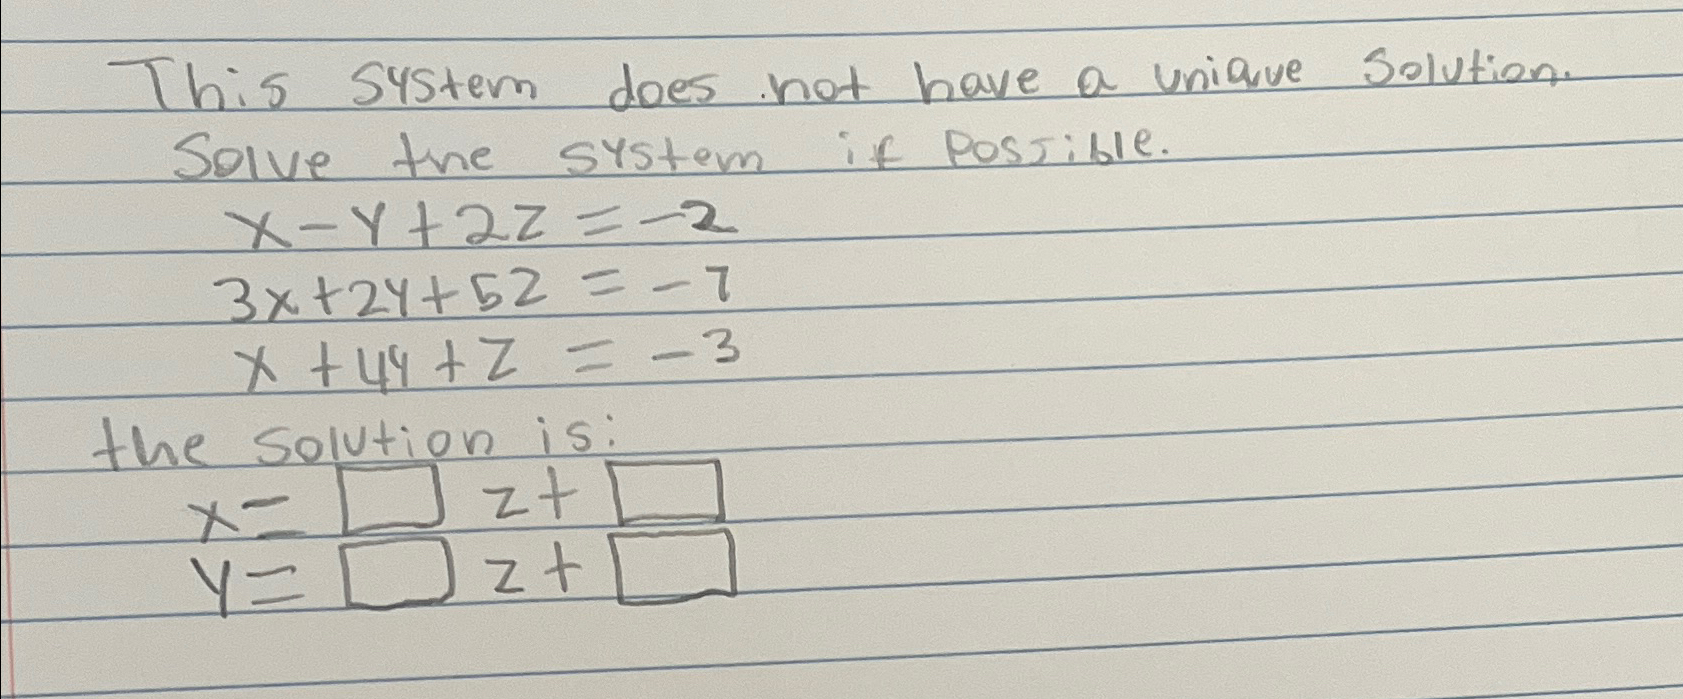 This system does not have a unique solution.
Solve the system if possible.
x - y + 2z = -2
3x + 2y + 5z = -7
x + 4y + z = -3
the solution is:
x = □ z + □
y = □ z + □